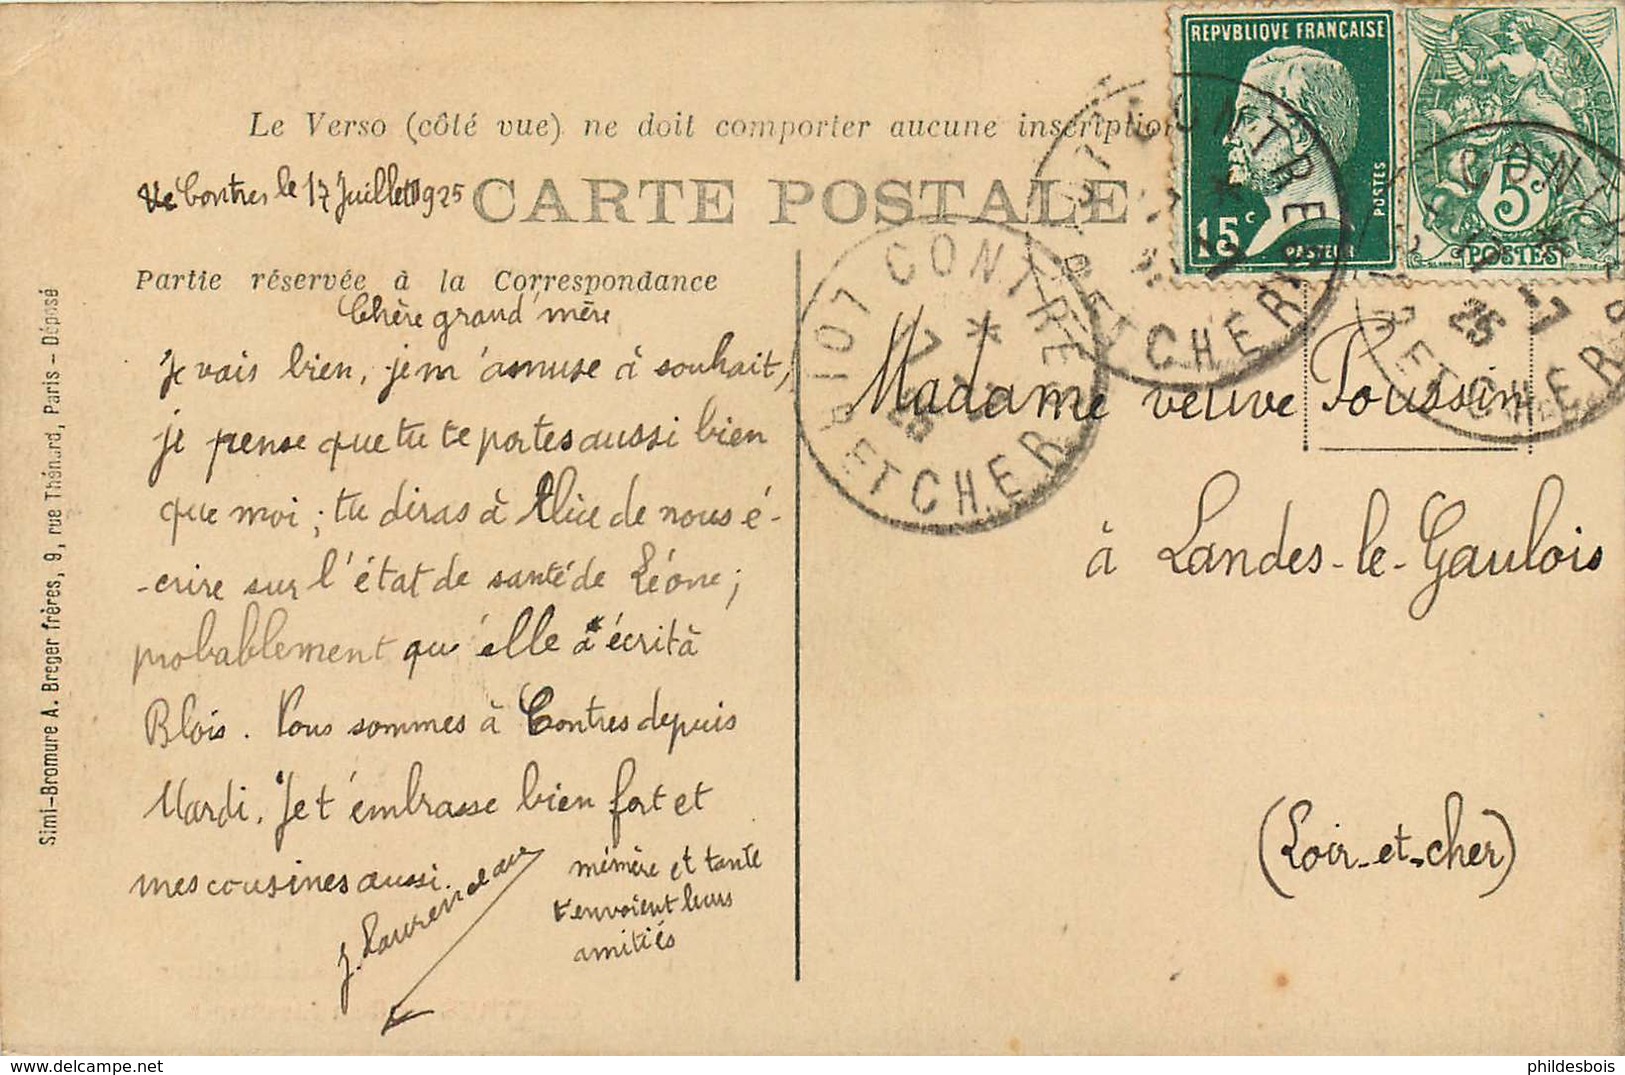 Le Verso (côté vue) ne doit comporter aucune inscription
Contres le 17 Juillet 1925
CARTE POSTALE
Partie réservée à la Correspondance
Chère grand'mère
Je vais bien, je m'amuse à souhait,
je pense que tu te portes aussi bien
que moi ; tu diras à Alice de nous é-
-crire sur l'état de santé de Léone ;
probablement qu'elle a écrit à
Blois. Nous sommes à Contres depuis
Mardi. Je t'embrasse bien fort et
mes cousines aussi.
J. Laurendeau
mémère et tante
t'envoient leurs
amitiés
Simi-Bromure A. Breger frères, 9, rue Thénard, Paris - Déposé
REPVBLIQVE FRANÇAISE
15c
PASTEUR
POSTES
5c
POSTES
CONTRES
LOIR ET CHER
17 -7
25
CONTRES
LOIR ET CHER
CONTRES
LOIR ET CHER
17 -7
25
Madame veuve Poussin
à Landes-le-Gaulois
(Loir-et-cher)
phildesbois